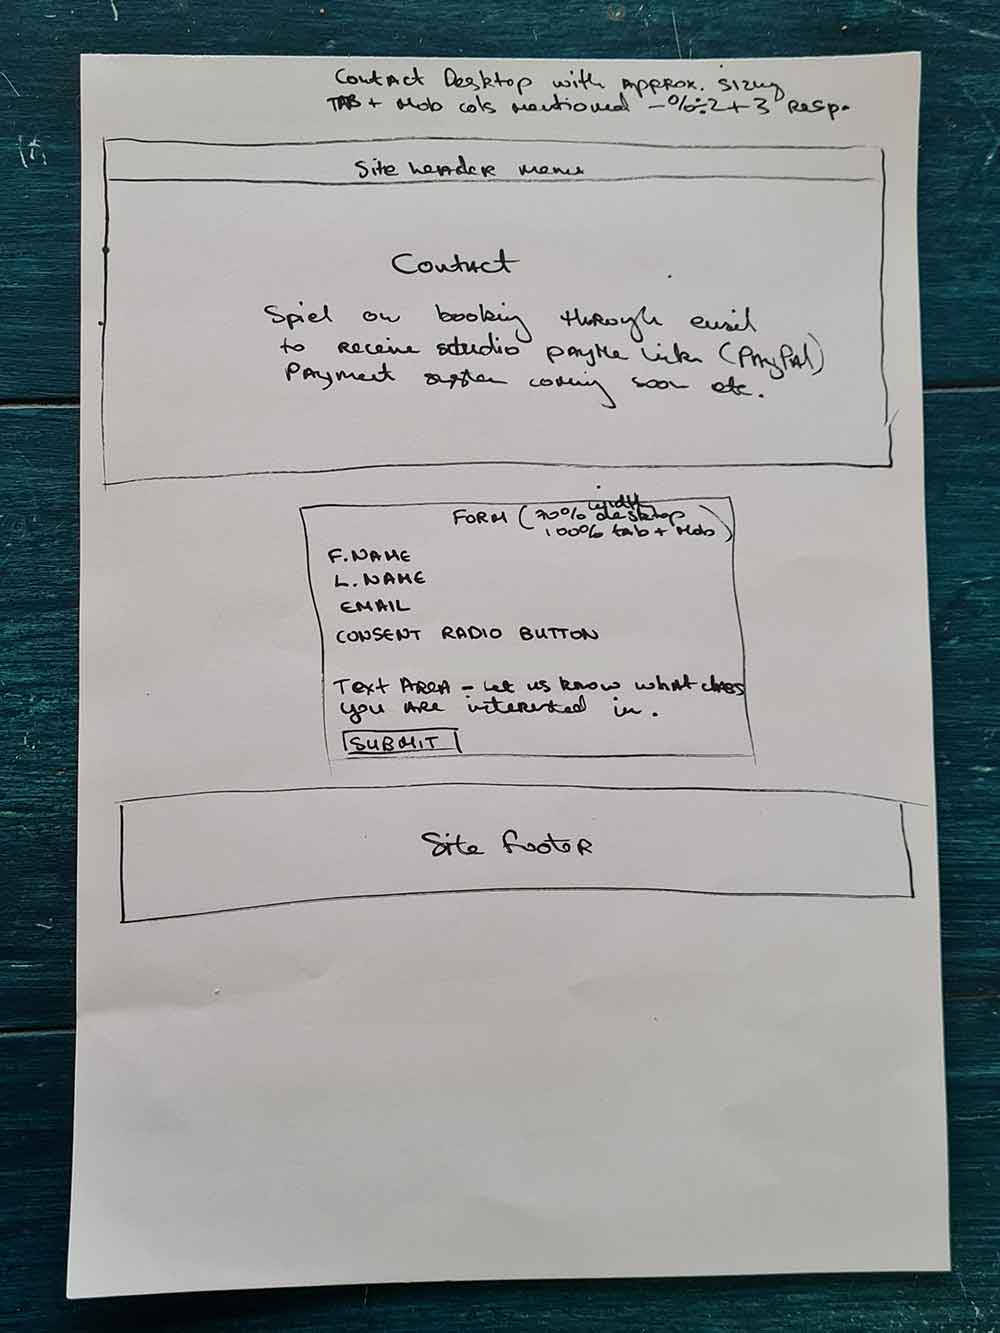 Contact Desktop with approx. sizing
TAB + Mob cols mentioned - % ÷ 2 + 3 Resp.
Site header menu
Contact
Spiel on booking through email
to receive studio payMe link (PayPal)
Payment system coming soon etc.
FORM (70% width desktop
100% tab + Mob)
F.NAME
L.NAME
EMAIL
CONSENT RADIO BUTTON
Text AREA - Let us know what class
you are interested in.
SUBMIT
Site footer